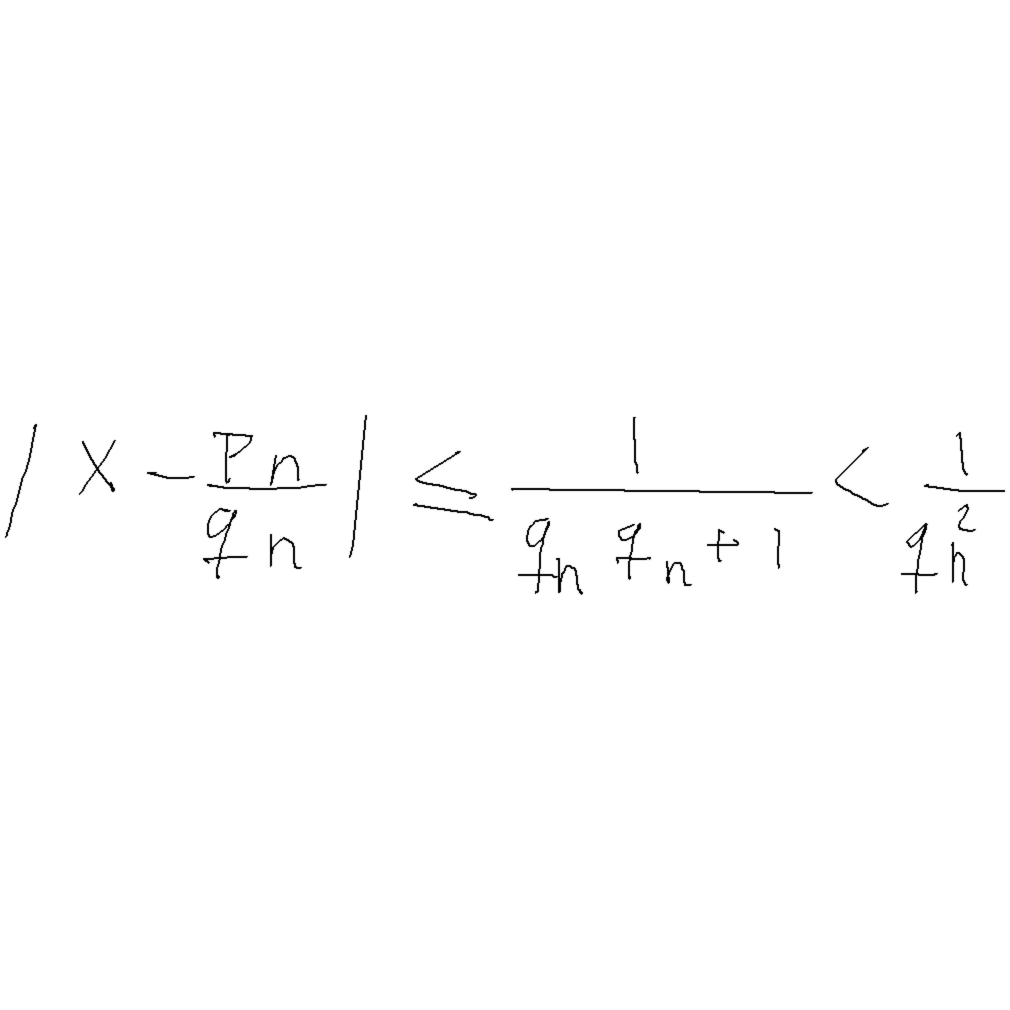 $\left| x - \frac{p_n}{q_n} \right| \leq \frac{1}{q_n q_{n+1}} < \frac{1}{q_n^2}$